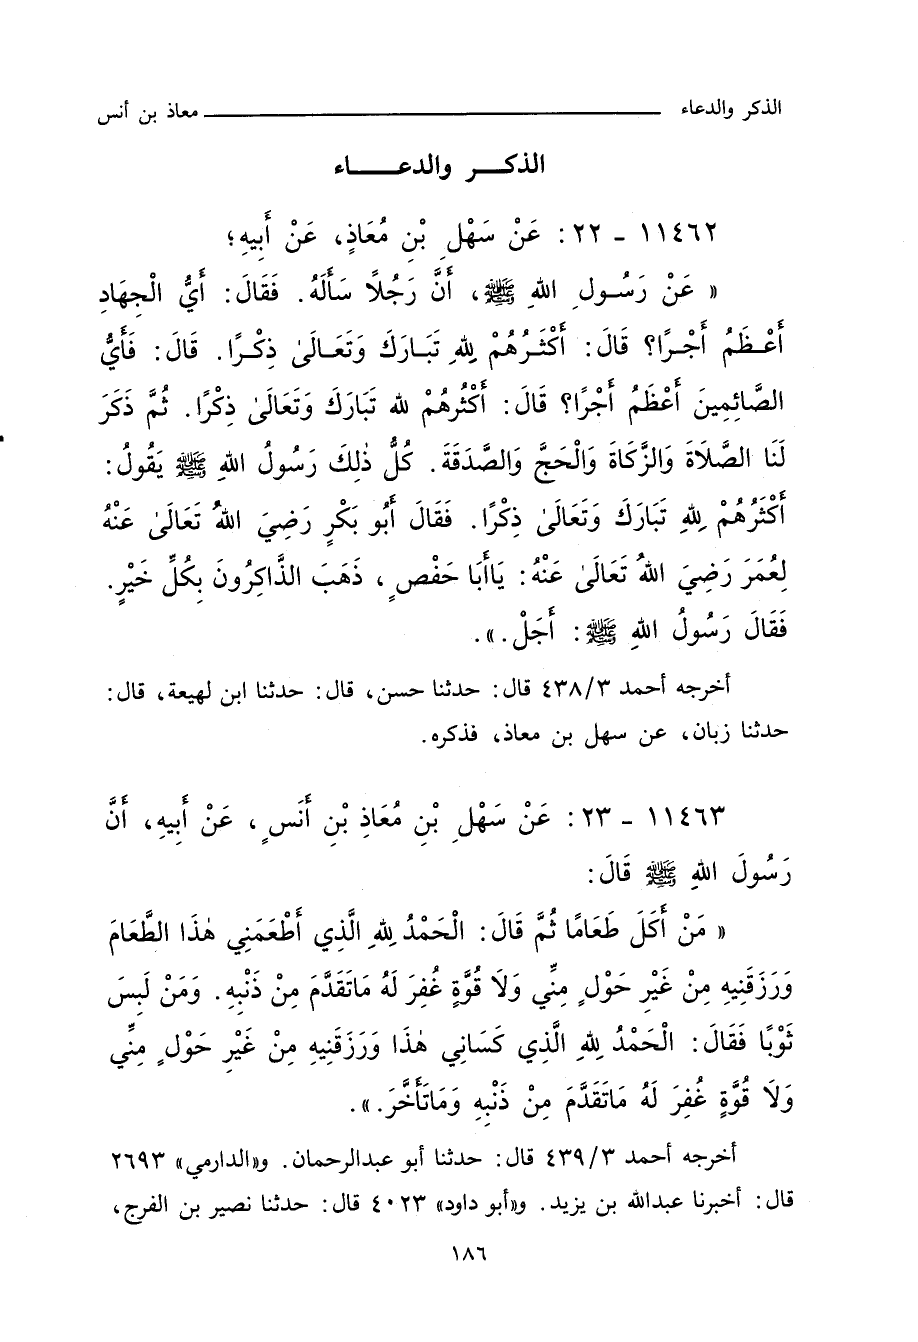 الذكر والدعاء ـــــــــــــــــــــ معاذ بن أنس
الذكـــر والدعـــــاء
١١٤٦٢ - ٢٢ : عَنْ سَهْلِ بْنِ مُعَاذٍ، عَنْ أَبِيهِ؛
« عَنْ رَسُـولِ اللهِ ﷺ، أَنَّ رَجُلاً سَأَلَهُ. فَقَالَ: أَيُّ الْجِهَادِ
أَعْـظَمُ أَجْـرًا؟ قَالَ: أَكْثَـرُهُمْ لِلهِ تَبَـارَكَ وَتَعَـالَىٰ ذِكْـرًا. قَالَ: فَأَيُّ
الصَّائِمِينَ أَعْظَمُ أَجْرًا؟ قَالَ: أَكْثُرُهُمْ لله تَبَارَكَ وَتَعَالَىٰ ذِكْرًا. ثُمَّ ذَكَرَ
لَنَا الصَّلَاةَ وَالزَّكَاةَ وَالْحَجَّ وَالصَّدَقَةَ. كُلُّ ذٰلِكَ رَسُولُ اللهِ ﷺ يَقُولُ:
أَكْثَرُهُمْ لِلهِ تَبَارَكَ وَتَعَالَىٰ ذِكْرًا. فَقَالَ أَبُو بَكْرٍ رَضِيَ اللهُ تَعَالَىٰ عَنْهُ
لِعُمَرَ رَضِيَ اللهُ تَعَالَىٰ عَنْهُ: يَاأَبَا حَفْصٍ، ذَهَبَ الذَّاكِرُونَ بِكُلِّ خَيْرٍ.
فَقَالَ رَسُولُ اللهِ ﷺ: أَجَلْ.».
أخرجه أحمد ٤٣٨/٣ قال: حدثنا حسن، قال: حدثنا ابن لهيعة، قال:
حدثنا زبان، عن سهل بن معاذ، فذكره.
١١٤٦٣ - ٢٣ : عَنْ سَهْلِ بْنِ مُعَاذِ بْنِ أَنَسٍ، عَنْ أَبِيهِ، أَنَّ
رَسُولَ اللهِ ﷺ قَالَ:
« مَنْ أَكَلَ طَعَامًا ثُمَّ قَالَ: الْحَمْدُ لِلهِ الَّذِي أَطْعَمَنِي هٰذَا الطَّعَامَ
وَرَزَقَنِيهِ مِنْ غَيْرِ حَوْلٍ مِنِّي وَلَا قُوَّةٍ غُفِرَ لَهُ مَاتَقَدَّمَ مِنْ ذَنْبِهِ. وَمَنْ لَبِسَ
ثَوْبًا فَقَالَ: الْحَمْدُ لِلهِ الَّذِي كَسَانِي هٰذَا وَرَزَقَنِيهِ مِنْ غَيْرِ حَوْلٍ مِنِّي
وَلَا قُوَّةٍ غُفِرَ لَهُ مَاتَقَدَّمَ مِنْ ذَنْبِهِ وَمَاتَأَخَّرَ.».
أخرجه أحمد ٤٣٩/٣ قال: حدثنا أبو عبدالرحمان. و«الدارمي» ٢٦٩٣
قال: أخبرنا عبدالله بن يزيد. و«أبو داود» ٤٠٢٣ قال: حدثنا نصير بن الفرج،
١٨٦